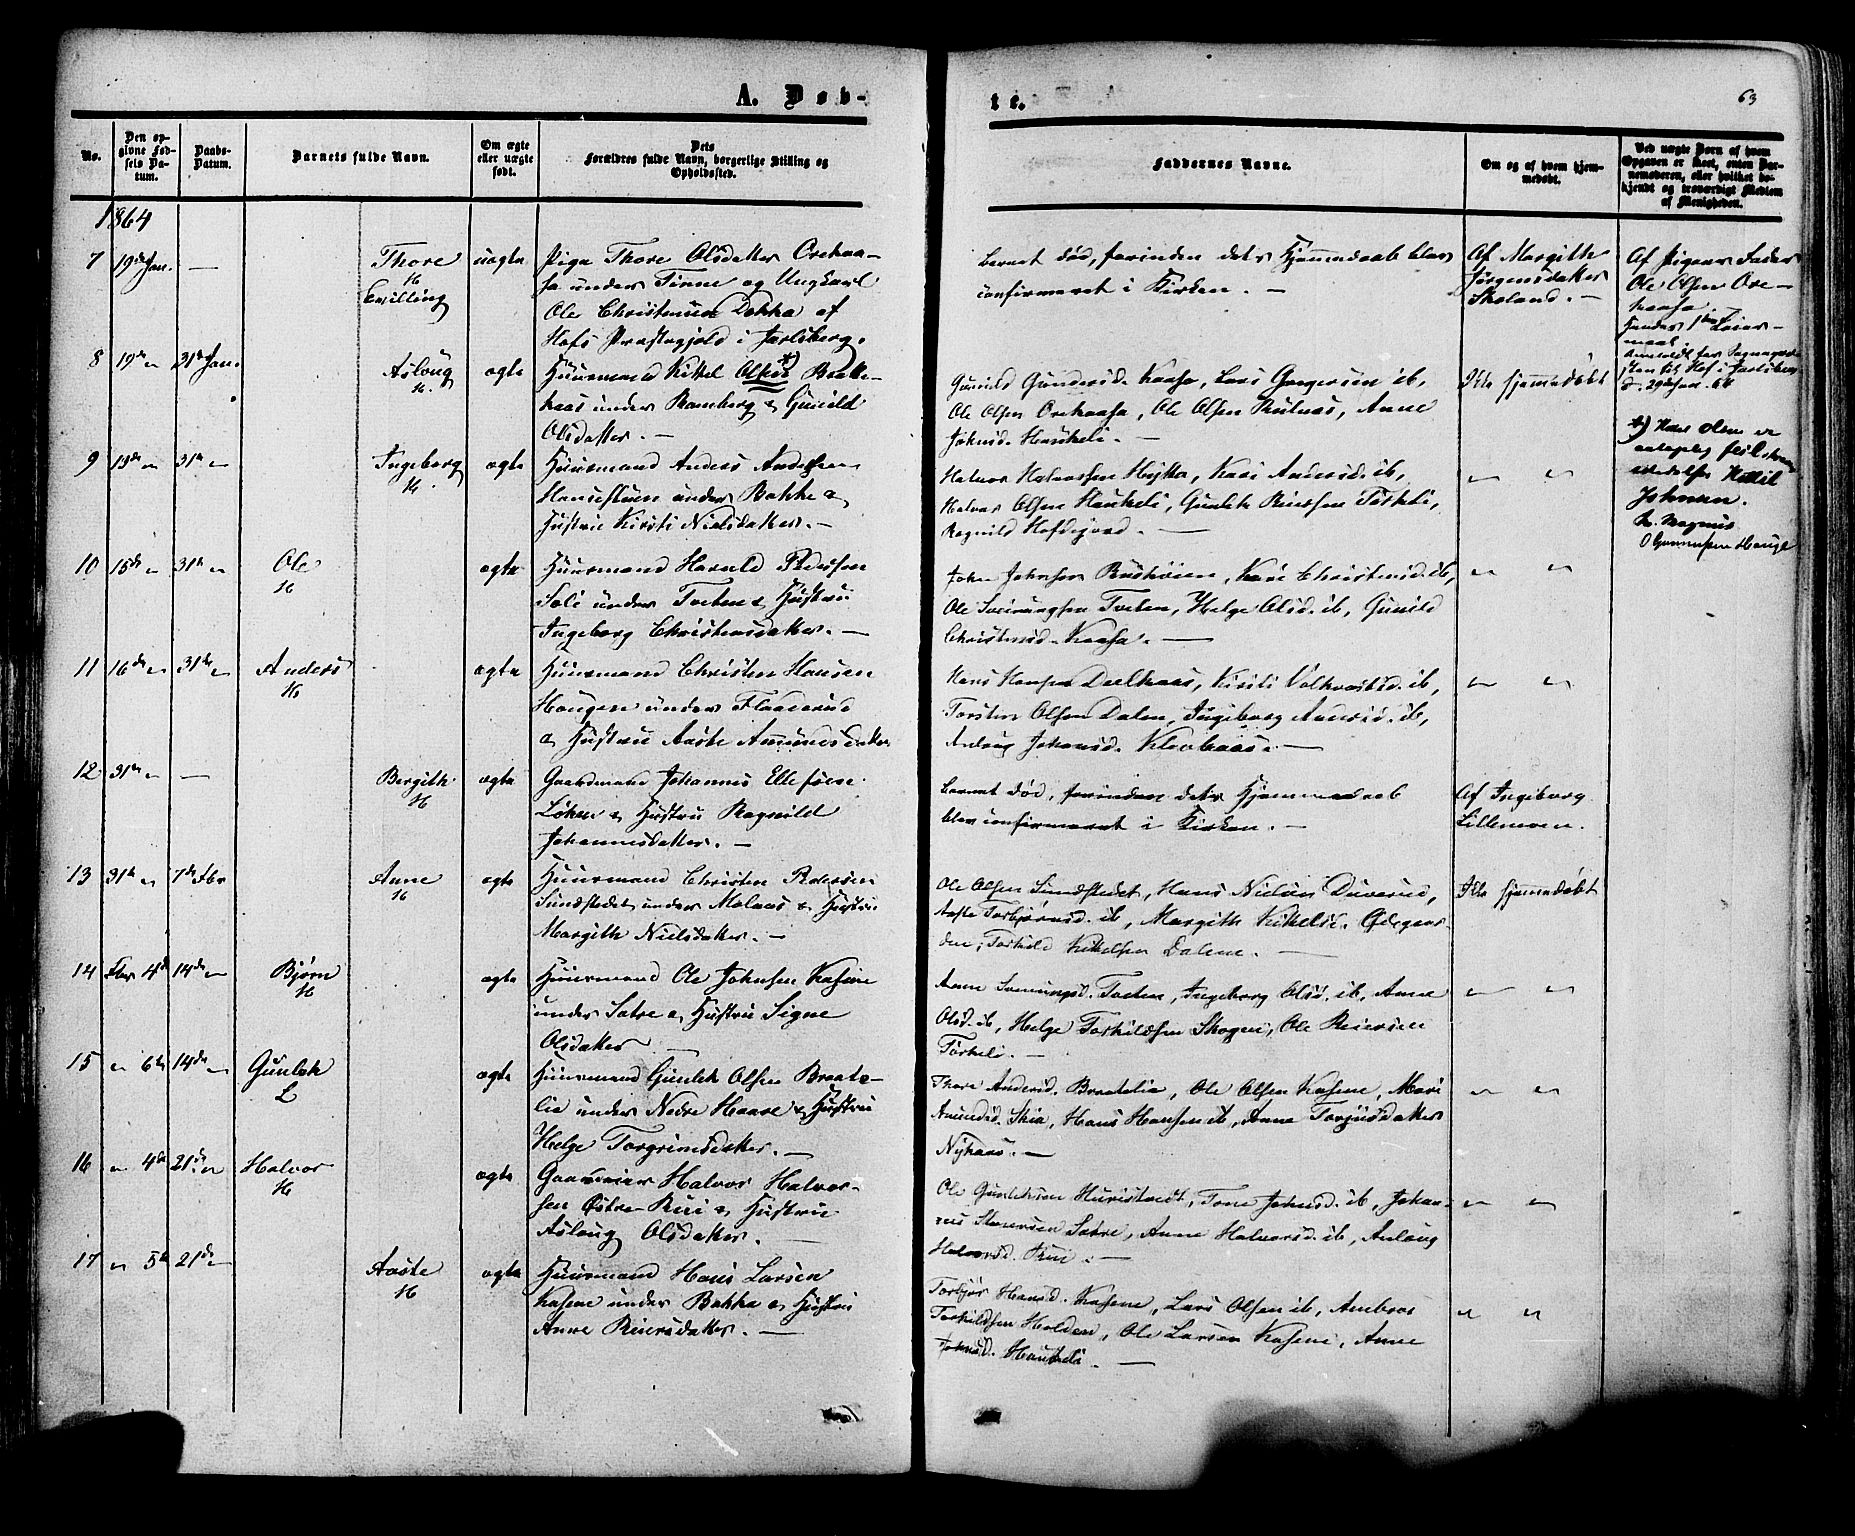 A. Døb-
te.
63
No.
Den op-
givne Fød-
sels Da-
tum.
Daabs-
Datum.
Barnets fulde Navn.
Om ægte
eller uægte
født.
Dets
Forældres fulde Navn, borgerlige Stilling og
Opholdssted.
Faddernes Navne.
Om og af hvem hjem-
medøbt.
Ved uægte Børn af hvem
Opgaven er skeet, enten Bar-
nemoderen, eller hvilket be-
kjendt og troværdigt Medlem
af Menigheden.
1864
7 19de Jan. — Thore uægte Pige Thore Olsdatter Orekaa-
H
Tvilling
sa under Tinne og Ungkarl
Ole Christensen Dokka af
Hofs Præstegjeld i Jarlsberg.
Barnet død, forinden dets Hjemmedaab blev
confirmeret i Kirken. —
Af Margith
Jørgensdatter
Skoland. —
Af Pigens Fader
Ole Olsen Ore-
kaasa.
Hendes 1ste Leier-
maal.
8 19de " 31te Jan. Aslaug ægte Huusmand Kittel Olsen *) Bratte-
H.
kaas under Bamberg & Gunild
Olsdatter. —
Gunild Gundersd. Kaasa, Lars Gregersen ib,
Ole Olsen Orekaasa, Ole Olsen Rulnaas, Anne
Johnsd. Haukeli. —
Ikke hjemmedøbt
*) Navnet Olsen er
feilskrevet
istedetfor Kittil
Johnsen.
9 13de " 31te " Ingeborg ægte Huusmand Anders Andersen
H.
Hansestuen under Bakke &
Hustru Kirsti Nielsdatter. —
Halvor Halvorsen Hejkka, Kari Andersd. ib,
Halvor Olsen Haukeli, Gunlek Reiersen Torkeli,
Ragnild Hofdejord. —
" "
10 15de " 31te " Ole ægte Huusmand Harald Pedersen
H
Soli under Tveten & Hustru
Ingeborg Christensdatter. —
John Johnsen Buskøien, Kari Christensd. ib,
Ole Sveinungsen Tveten, Helge Olsd. ib, Gunild
Christensd. Kaasa. —
" "
11 16de " 31te " Anders ægte Huusmand Christen Hansen
H
Haugen under Flaaterud
& Hustru Aaste Amundsdatter
Hans Hansen Dalkaas, Kirsti Volkvartsd. ib,
Torsten Olsen Dalen, Ingeborg Andersd. ib,
Anlaug Johansd. Klevkaas. —
" "
12 31te " — Bergith ægte Gaardmand Johannes Ellefsen
H
Løken & Hustru Ragnild
Johannesdatter. —
Barnet død, forinden dets Hjemmedaab
blev confirmeret i Kirken. —
Af Ingeborg
Lillemoen.
13 31te " 7de Fbr Anne ægte Huusmand Christen Pedersen
H
Sundstedet under Melaas & Hustru
Margith Nielsdatter. —
Ole Olsen Sundstedet, Hans Nielsen Duverud,
Aaste Torbjørnsd. ib, Margith Kittelsd. Ødegaar-
den, Torkild Kittelsen Dalene. —
Ikke hjemmedøbt
14 Fbr 4de 14de " Bjørn ægte Huusmand Ole Johnsen Kasene
H
under Satre & Hustru Signe
Olsdatter —
Anne Sveinungsd. Tveten, Ingeborg Olsd. ib, Anne
Olsd. ib, Helge Torkildsen Skogen, Ole Reiersen
Torkeli. —
" "
15 " 6te 14de " Gunlek ægte Huusmand Gunlek Olsen Braate-
L
lia under Nedre Haave & Hustru
Helge Torgrimsdatter. —
Thore Andersd. Braatelia, Ole Olsen Kasene, Mari
Amundsd. Skia, Hans Hansen ib, Anne Torjusdatter
Nykaas. —
" "
16 " 4de 21de " Halvor ægte Gaardeier Halvor Halvor-
H
sen Østre Rui & Hustru
Aslaug Olsdatter. —
Ole Gunleksen Huristvedt, Tone Johnsd. ib, Johan-
nes Stenersen Satre, Anne Halvorsd. ib, Anlaug
Halvorsd. Rui. —
" "
17 " 5te 21de " Aaste ægte Huusmand Hans Larsen
H
Kasene under Bakka & Hustru
Anne Reiersdatter. —
Torbjør Hansd. Kasene, Lars Olsen ib, Ambros
Torkildsen Holden, Ole Larsen Kasene, Anne
Johnsd. Haukeli. —
" "